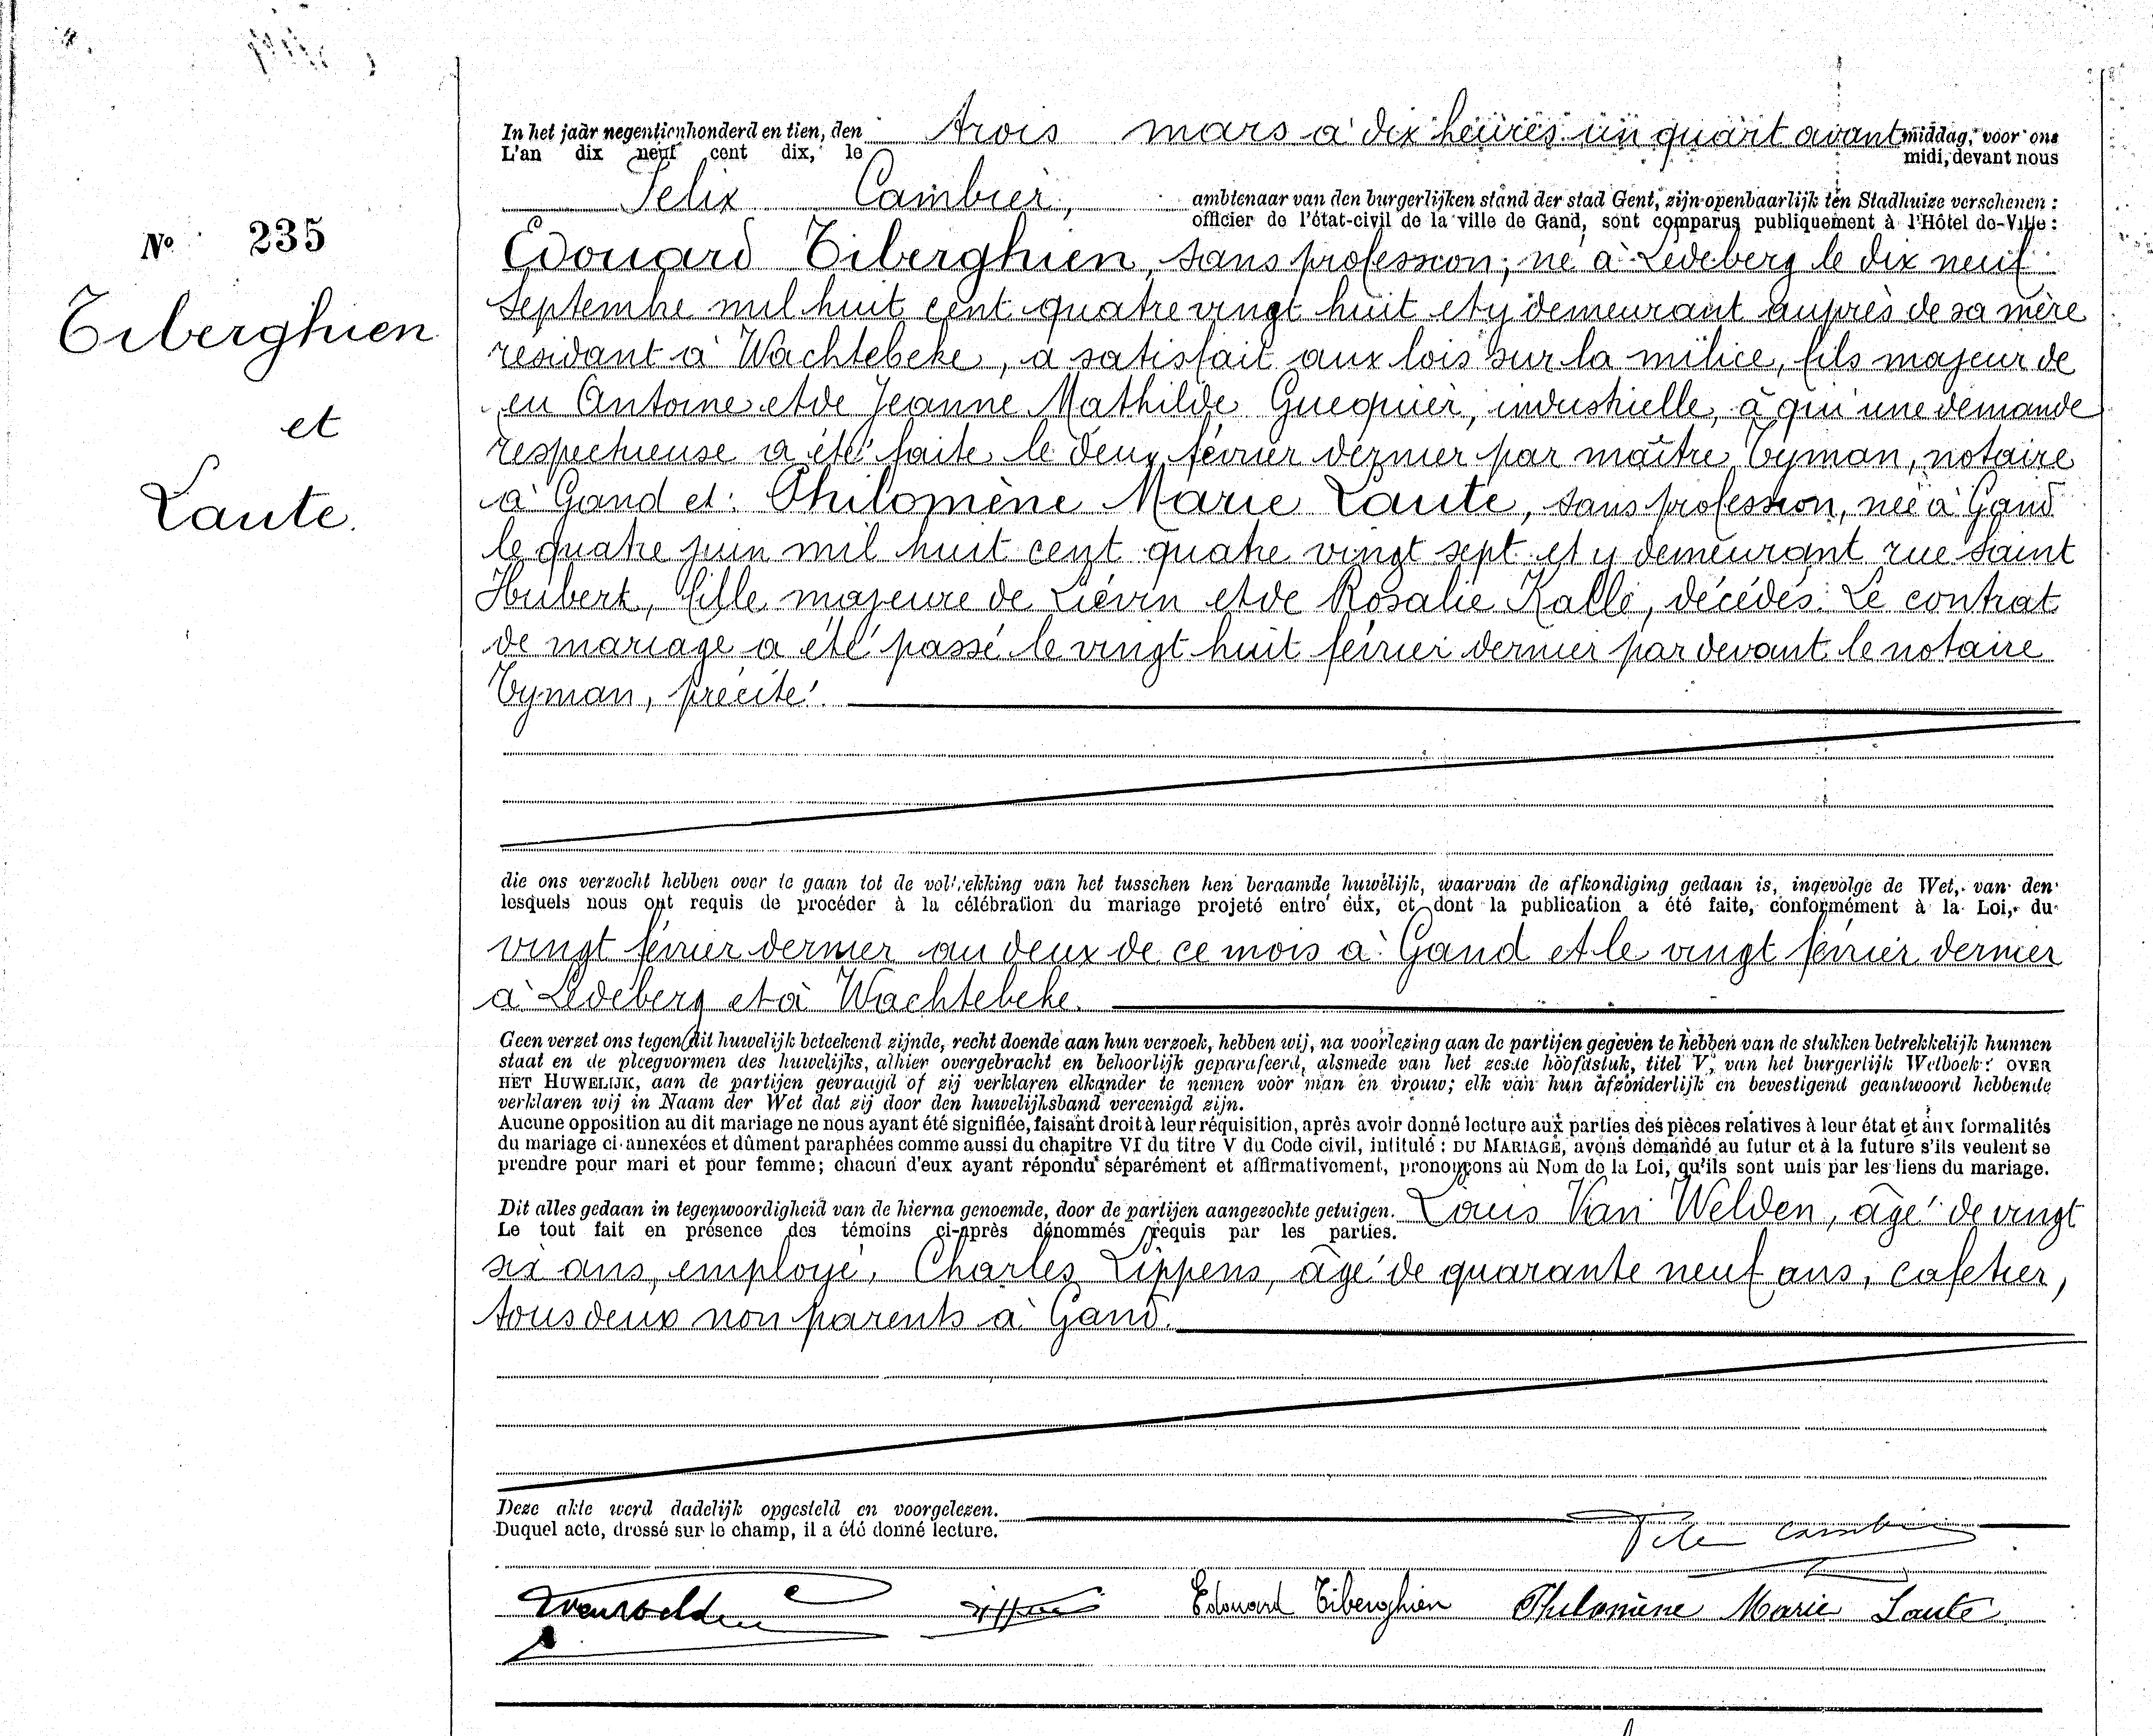 In het jaar negentienhonderd en tien, den trois mars à dix heures un quart avant middag, voor ons
L'an dix neuf cent dix, le midi, devant nous
Felix Cambier, ambtenaar van den burgerlijken stand der stad Gent, zijn openbaarlijk ten Stadhuize verschenen :
officier de l'état-civil de la ville de Gand, sont comparus publiquement à l'Hôtel de-Ville :
Nº 235
Tiberghien
et
Laute.
Edouard Tiberghien, sans profession, né à Ledeberg le dix neuf
septembre mil huit cent quatre vingt huit et y demeurant auprès de sa mère
résidant à Wachtebeke, a satisfait aux lois sur la milice, fils majeur de
feu Antoine et de Jeanne Mathilde Guequier, industrielle, à qui une demande
respectueuse a été faite le deux février dernier par maître Tyman, notaire
à Gand et : Philomène Marie Laute, sans profession, née à Gand
le quatre juin mil huit cent quatre vingt sept et y demeurant rue Saint
Hubert, fille majeure de Liévin et de Rosalie Kallo, décédés. Le contrat
de mariage a été passé le vingt huit février dernier par devant le notaire
Tyman, précité.
die ons verzocht hebben over te gaan tot de voltrekking van het tusschen hen beraamde huwelijk, waarvan de afkondiging gedaan is, ingevolge de Wet, van den
lesquels nous ont requis de procéder à la célébration du mariage projeté entre eux, et dont la publication a été faite, conformément à la Loi, du
vingt février dernier au deux de ce mois à Gand et le vingt février dernier
à Ledeberg et à Wachtebeke.
Geen verzet ons tegen dit huwelijk beteekend zijnde, recht doende aan hun verzoek, hebben wij, na voorlezing aan de partijen gegeven te hebben van de stukken betrekkelijk hunnen
staat en de pleegvormen des huwelijks, alhier overgebracht en behoorlijk geparafeerd, alsmede van het zesde hoofdstuk, titel V, van het burgerlijk Wetboek : OVER
HET HUWELIJK, aan de partijen gevraagd of zij verklaren elkander te nemen voor man en vrouw; elk van hun afzonderlijk en bevestigend geantwoord hebbende
verklaren wij in Naam der Wet dat zij door den huwelijksband vereenigd zijn.
Aucune opposition au dit mariage ne nous ayant été signifiée, faisant droit à leur réquisition, après avoir donné lecture aux parties des pièces relatives à leur état et aux formalités
du mariage ci-annexées et dûment paraphées comme aussi du chapitre VI du titre V du Code civil, intitulé : DU MARIAGE, avons demandé au futur et à la future s'ils veulent se
prendre pour mari et pour femme; chacun d'eux ayant répondu séparément et affirmativement, prononçons au Nom de la Loi, qu'ils sont unis par les liens du mariage.
Dit alles gedaan in tegenwoordigheid van de hierna genoemde, door de partijen aangezochte getuigen. Louis Van Welden, âgé de vingt
Le tout fait en présence des témoins ci-après dénommés requis par les parties.
six ans, employé, Charles Lippens, âgé de quarante neuf ans, cafetier,
tous deux non parents à Gand.
Deze akte werd dadelijk opgesteld en voorgelezen.
Duquel acte, dressé sur le champ, il a été donné lecture.
Felix Cambier
Edouard Tiberghien Philomène Marie Laute